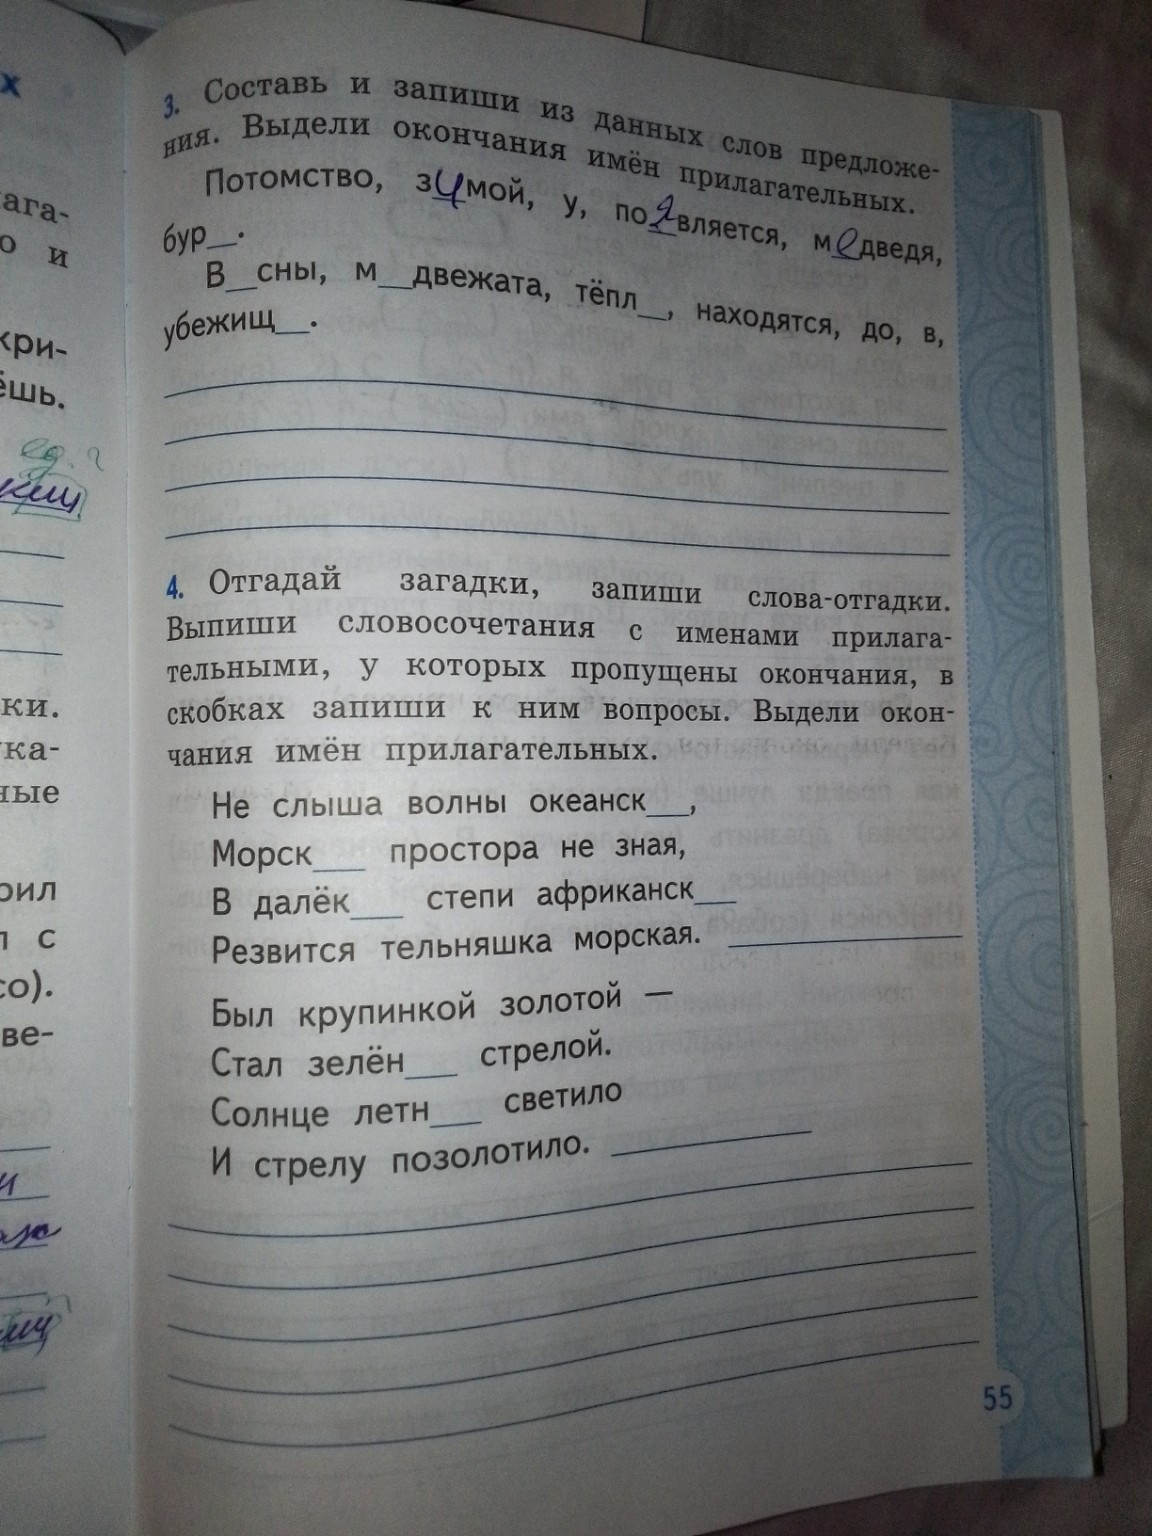 х
лага-
о и
кри-
ёшь.
ед. ?
ки.
ука-
ные
рил
л с
со).
ве-
3. Составь и запиши из данных слов предложе-
ния. Выдели окончания имён прилагательных.
Потомство, зимой, у, появляется, медведя,
бур__.
В__сны, м__двежата, тёпл__, находятся, до, в,
убежищ__.
4. Отгадай загадки, запиши слова-отгадки.
Выпиши словосочетания с именами прилага-
тельными, у которых пропущены окончания, в
скобках запиши к ним вопросы. Выдели окон-
чания имён прилагательных.
Не слыша волны океанск__,
Морск__ простора не зная,
В далёк__ степи африканск__
Резвится тельняшка морская. ____
Был крупинкой золотой —
Стал зелён__ стрелой.
Солнце летн__ светило
И стрелу позолотило. ____
55